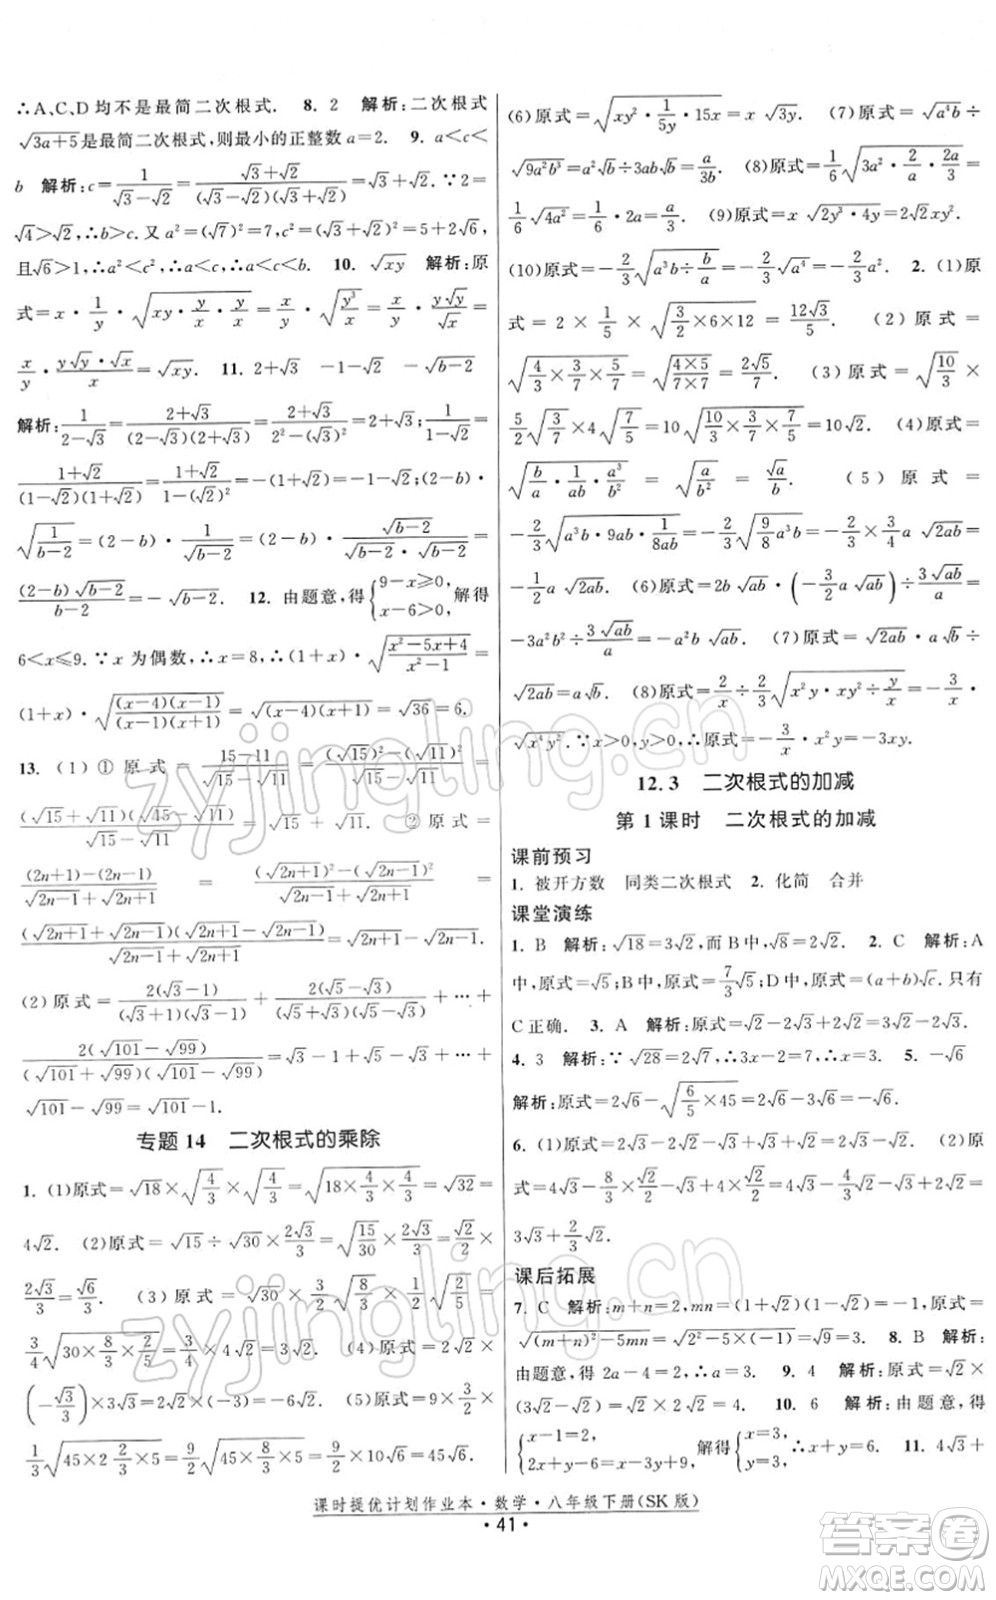 ∴A,C,D均不是最简二次根式. 8. 2 解析:二次根式
√(3a+5)是最简二次根式,则最小的正整数a=2. 9. a<c<
b 解析:c=1/(√3-√2)=(√3+√2)/((√3-√2)(√3+√2))=√3+√2.∵2=
√4>√2,∴b>c.又a²=(√7)²=7,c²=(√3+√2)²=5+2√6,
且√6>1,∴a²<c²,∴a<c,∴a<c<b. 10. √xy 解析:原
式=x·1/y·√(xy·y/x·y/x)=x/y·√(y³/x)=x/y·(y√y)/√x=
x/y·(y√y·√x)/x=√xy. 11. 2+√3 -1-√2 -√(b-2)
解析:1/(2-√3)=(2+√3)/((2-√3)(2+√3))=(2+√3)/(2²-√3²)=2+√3;1/(1-√2)=
(1+√2)/((1-√2)(1+√2))=(1+√2)/(1-(√2)²)=-(1+√2)=-1-√2;(2-b)·
√(1/(b-2))=(2-b)·1/√(b-2)=(2-b)·√(b-2)/(√(b-2)·√(b-2))=
(2-b)√(b-2)/(b-2)=-√(b-2). 12. 由题意,得{9-x≥0, x-6>0, 解得
6<x≤9.∵x为偶数,∴x=8,∴(1+x)·√((x²-5x+4)/(x²-1))=
(1+x)·√((x-4)(x-1)/((x-1)(x+1)))=√((x-4)(x+1))=√36=6.
13. (1)①原式=(15-11)/(√15-√11)=((√15)²-(√11)²)/(√15-√11)=
(√15+√11)(√15-√11)/(√15-√11)=√15+√11. ②原式=
((2n+1)-(2n-1))/(√(2n+1)+√(2n-1))=(√(2n+1)²-√(2n-1)²)/(√(2n+1)+√(2n-1))=
(√(2n+1)+√(2n-1))(√(2n+1)-√(2n-1))/(√(2n+1)+√(2n-1))=√(2n+1)-√(2n-1).
(2)原式=2(√3-1)/((√3+1)(√3-1))+2(√5-√3)/((√5+√3)(√5-√3))+…+
2(√101-√99)/((√101+√99)(√101-√99))=√3-1+√5-√3+…+
√101-√99=√101-1.
专题14 二次根式的乘除
1. (1)原式=√18×√(4/3)×√(4/3)=√(18×4/3×4/3)=√32=
4√2. (2)原式=√15÷√30×2√3/3=√(15/30)×2√3/3=√2/2×
2√3/3=√6/3. (3)原式=√30×3/2√(8/3)÷2√(5/2)=
3/4√(30×8/3×2/5)=3/4√32=3√2. (4)原式=4√18×
(-√3/3)×√3/2=4×3√2×(-1/2)=-6√2. (5)原式=9×2/3×
1/3√(45×5/2×2/3)=9/2√(45×8/3×2/5)=9/2×√(10)√6=45√6.
(6)原式=√(xy²·1/5y·15x)=x√3y. (7)原式=√(a⁴b)÷
√(9a²b³)=a²√b÷3ab√b=a/3b. (8)原式=1/6√(3a²·2/a·2a/3)÷
1/6√4a²=1/6·2a=1/3a. (9)原式=x√(2y³·4y)=2√2xy².
(10)原式=-2/3√(a³b÷b/a)=-2/3√a⁴=-2/3a². 2. (1)原
式=2×1/5×√(3/2×6×12)=12√3/5. (2)原式=
√(4/3×3/7×5/7)=√(4×5/7×7)=2√5/7. (3)原式=√(10/3)×
5/2√(3/7)×4√(7/5)=10√(10/3×3/7×7/5)=10√2. (4)原式=
√(b/a·1/ab·a³/b)=√(a/b²)=√a/b. (5)原式=
-2/3√(a³b·9ab·1/8ab)=-2/3√(9/8a³b)=-2/3×3/4a√2ab=
-1/2a√2ab. (6)原式=2a√ab·(-3/2a√ab)÷3√ab/a=
-3a²b²÷3√ab/a=-a²b√ab. (7)原式=√2ab·a√b÷
√2ab=a√b. (8)原式=2/x÷2/3√(x²y·xy²÷y/x)=-3/x·
√(x⁴y²).∵x>0,y>0,∴原式=-3/x·x²y=-3xy.
12.3 二次根式的加减
第1课时 二次根式的加减
课前预习
1. 被开方数 同类二次根式 2. 化简 合并
课堂演练
1. B 解析:√18=3√2,而B中,√8=2√2. 2. C 解析:A
中,原式=√5+√3;B中,原式=7/3√5;D中,原式=(a+b)√c.只有
C正确. 3. A 解析:原式=√2-2√3+2√3=√2.
4. 3 解析:∵√28=2√7,∴3x-2=7,∴x=3. 5. -√6
解析:原式=2√6-√(6/5×45)=2√6-3√6=-√6.
6. (1)原式=2√3-2√3-√3+√3=√3-√2. (2)原
式=4√3-8/3×√3/2+4×√2/2-2√2=4√3-4/3√3+2√2-2√2=
3√3+2/3√3.
课后拓展
7. C 解析:m+n=2,mn=(1+√2)(1-√2)=-1,原式=
√((m+n)²-5mn)=√(2²-5×(-1))=√9=3. 8. B 解析:
由题意,得2a-4=2,∴a=3. 9. 4 解析:原式=√2×
(3√2-√2)=√2×2√2=4. 10. 6 解析:由题意,得
{x-1=2, 2x+y-2=4x-5, 解得{x=3, y=3, ∴x+y=6. 11. 4√3+
课时提优计划作业本·数学·八年级下册(SK版)
·41·
zyjingling.cn
zyjingling.cn
答案圈
MXQE.COM